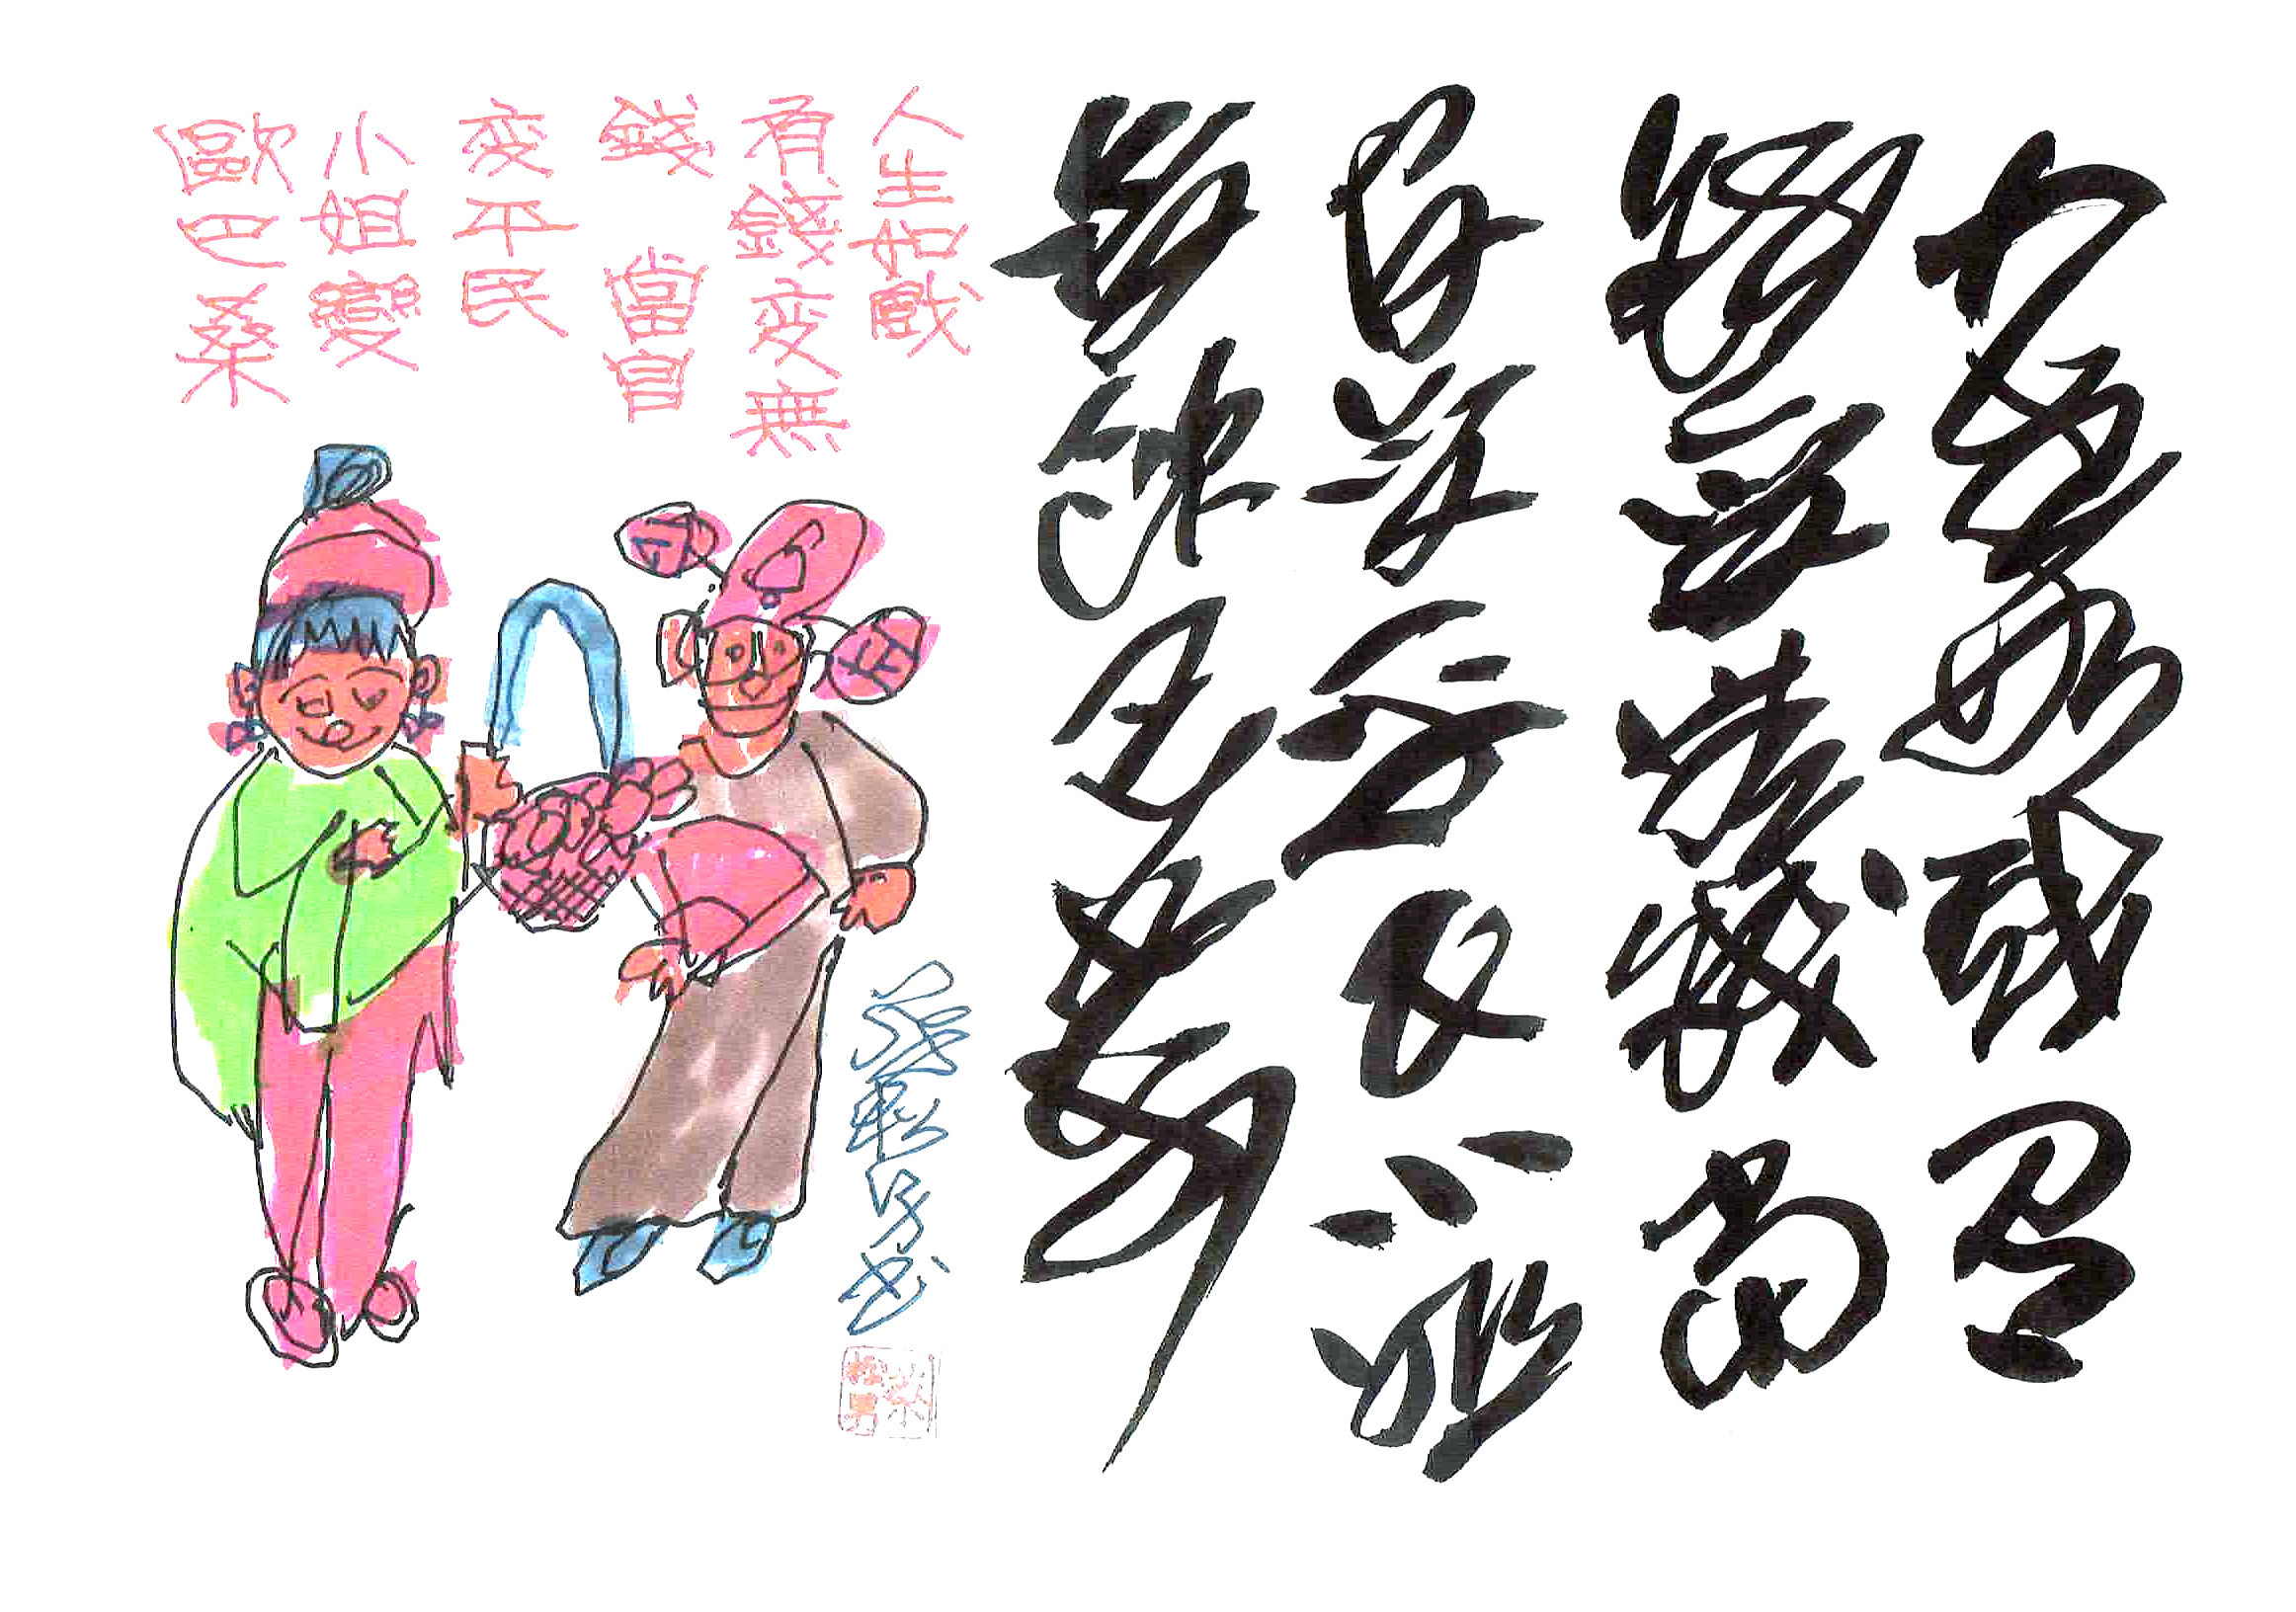 人生如戲有
錢變無錢當
官變平民小姐
變歐巴桑
人生如戲
有錢変無
錢 當官
変平民
小姐變
歐巴桑